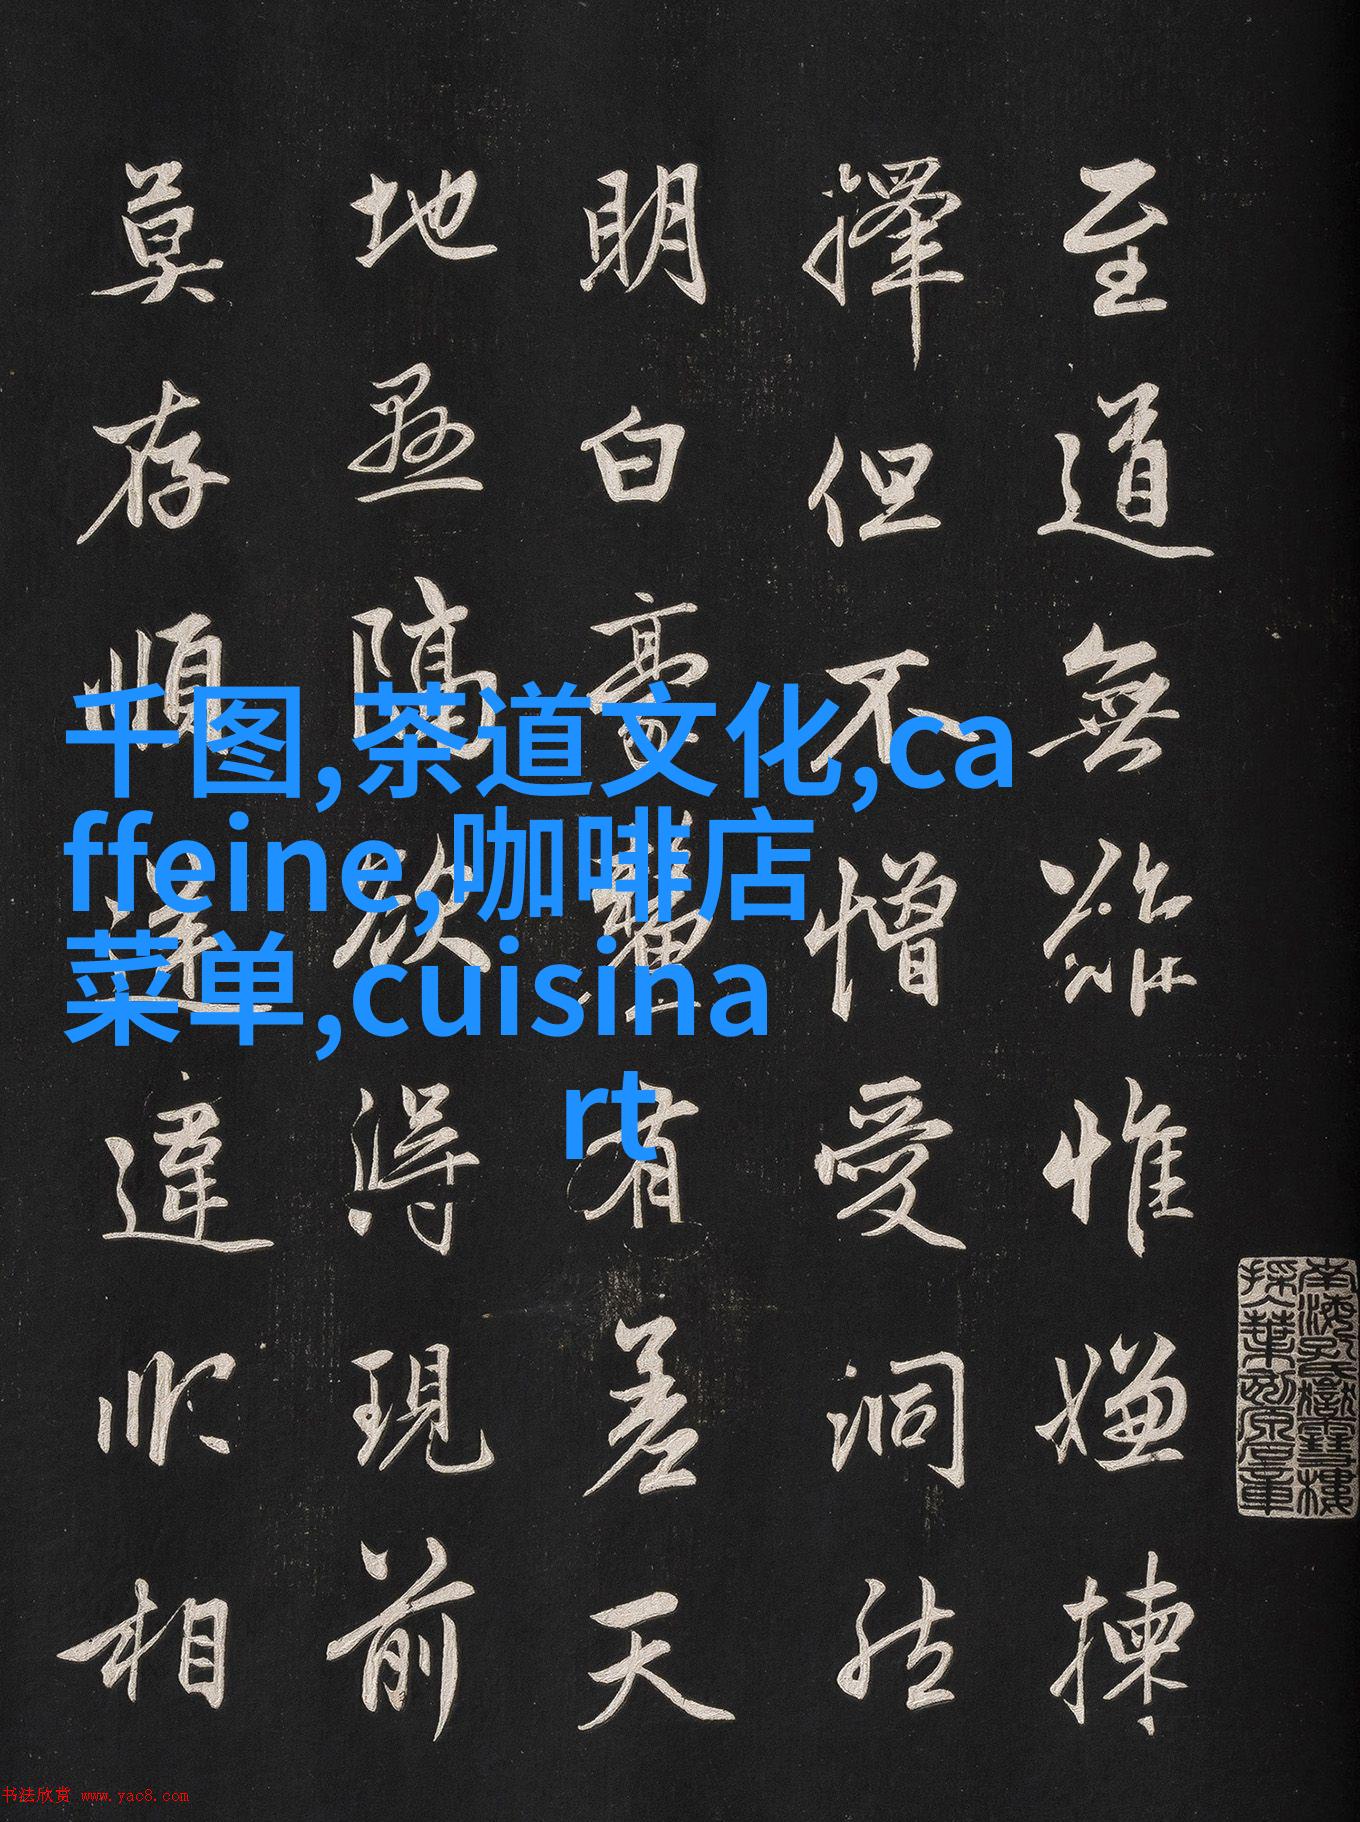 至道無難惟嫌揀
擇但不憎愛洞然
明白豪釐有差天
地懸隔欲得現前
莫存順逆違順相
千图,茶道文化,ca
ffeine,咖啡店
菜单,cuisina
rt
南海孔氏嶽雪樓
书法欣赏 www.yac8.com